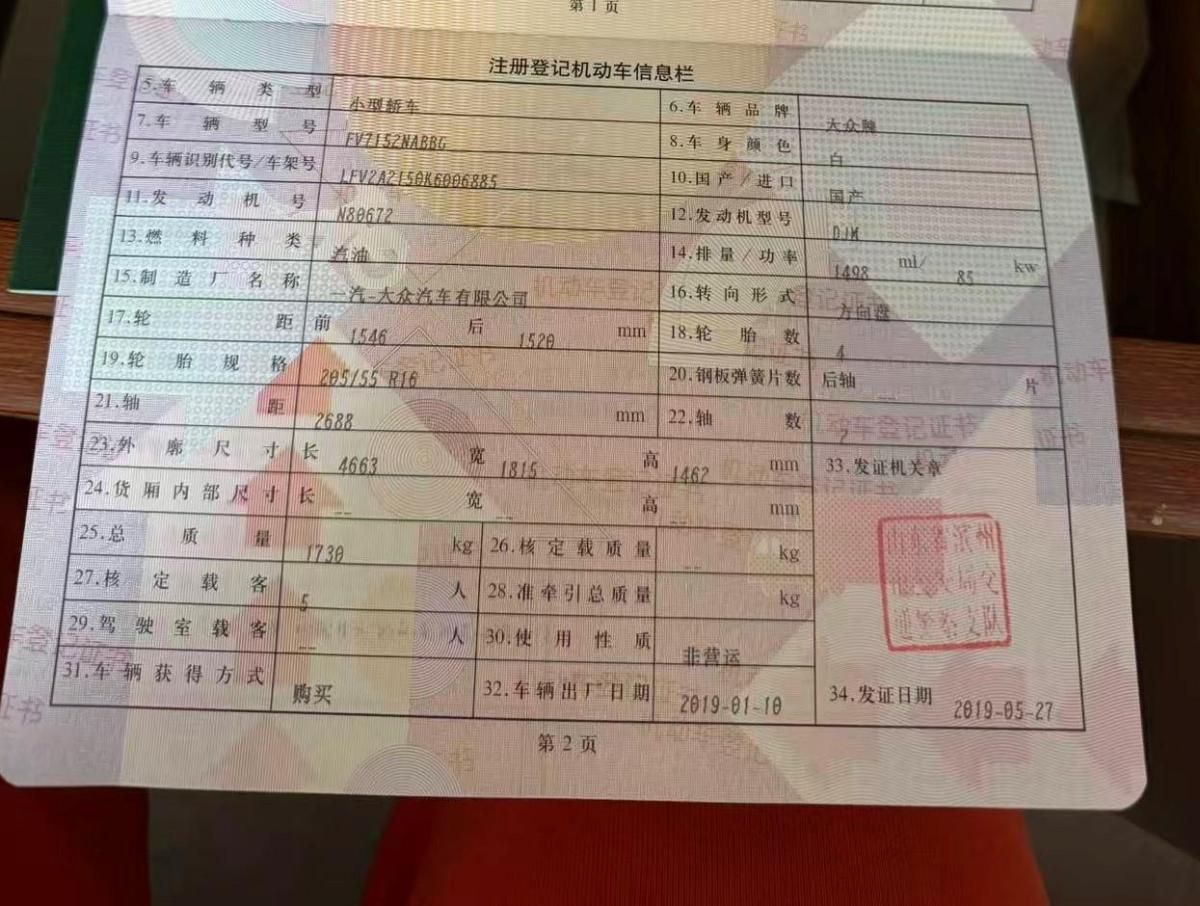 第1页
注册登记机动车信息栏
5.车辆类型 小型轿车 6.车辆品牌 大众牌
7.车辆型号 FV7152NABBG 8.车身颜色 白
9.车辆识别代号/车架号 LFV2A2150K6006885 10.国产/进口 国产
11.发动机号 N80672 12.发动机型号 DJM
13.燃料种类 汽油 14.排量/功率 1498 ml/ 85 kw
15.制造厂名称 一汽-大众汽车有限公司 16.转向形式 方向盘
17.轮距 前 1546 后 1520 mm 18.轮胎数 4
19.轮胎规格 205/55 R16 20.钢板弹簧片数 后轴 片
21.轴距 2688 mm 22.轴数 2
23.外廓尺寸 长 4663 宽 1815 高 1462 mm 33.发证机关章
24.货厢内部尺寸 长 -- 宽 -- 高 -- mm
25.总质量 1730 kg 26.核定载质量 -- kg
27.核定载客 5 人 28.准牵引总质量 kg
29.驾驶室载客 -- 人 30.使用性质 非营运
31.车辆获得方式 购买 32.车辆出厂日期 2019-01-10 34.发证日期 2019-05-27
山东省滨州
局交
通警察支队
第2页